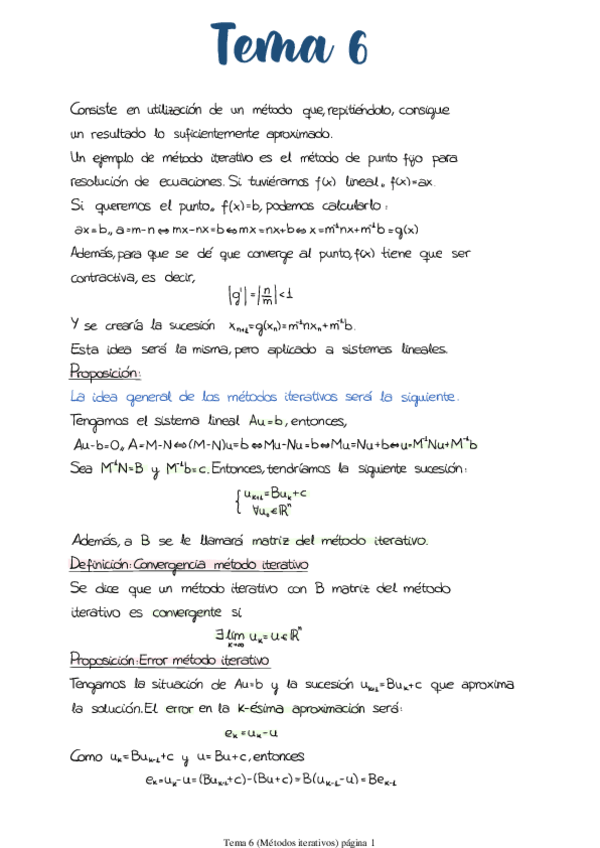 Tema 6
Consiste en utilización de un método que, repitiéndolo, consigue
un resultado lo suficientemente aproximado.
Un ejemplo de método iterativo es el método de punto fijo para
resolución de ecuaciones. Si tuviéramos f(x) lineal, f(x)=ax.
Si queremos el punto, f(x)=b, podemos calcularlo:
ax=b, a=m-n ⇔ mx-nx=b ⇔ mx=nx+b ⇔ x=m⁻¹nx+m⁻¹b=g(x)
Además, para que se dé que converge al punto, f(x) tiene que ser
contractiva, es decir,
|g'|=|n/m|<1
Y se crearía la sucesión xₙ₊₁=g(xₙ)=m⁻¹nxₙ+m⁻¹b.
Esta idea será la misma, pero aplicado a sistemas lineales.
Proposición:
La idea general de los métodos iterativos será la siguiente.
Tengamos el sistema lineal Au=b, entonces,
Au-b=0, A=M-N ⇔ (M-N)u=b ⇔ Mu-Nu=b ⇔ Mu=Nu+b ⇔ u=M⁻¹Nu+M⁻¹b
Sea M⁻¹N=B y M⁻¹b=c. Entonces, tendríamos la siguiente sucesión:
{ uₖ₊₁=Buₖ+c
∀u₀∈ℝⁿ
Además, a B se le llamará matriz del método iterativo.
Definición: Convergencia método iterativo
Se dice que un método iterativo con B matriz del método
iterativo es convergente si
∃ lim uₖ=u∈ℝⁿ
k→∞
Proposición: Error método iterativo
Tengamos la situación de Au=b y la sucesión uₖ₊₁=Buₖ+c que aproxima
la solución. El error en la k-ésima aproximación será:
eₖ=uₖ-u
Como uₖ=Buₖ₋₁+c y u=Bu+c, entonces
eₖ=uₖ-u=(Buₖ₋₁+c)-(Bu+c)=B(uₖ₋₁-u)=Beₖ₋₁
Tema 6 (Métodos iterativos) página 1